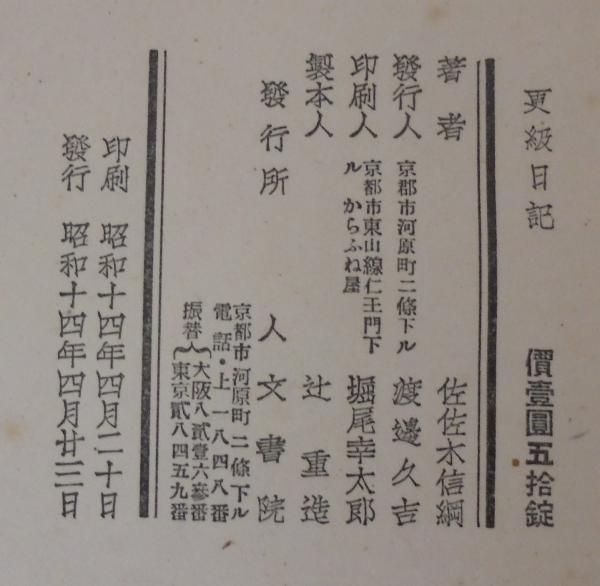 更級日記 價壹圓五拾錠
著者 佐佐木信綱
發行人 京都市河原町二條下ル 渡邊久吉
印刷人 京都市東山線仁王門下ル からふね屋 堀尾幸太郎
製本人 辻重造
發行所 人文書院
京都市河原町二條下ル
電話・上一八四八番
振替 大阪八貳壹六參番
東京貳八四五九番
印刷 昭和十四年四月二十日
發行 昭和十四年四月廿三日